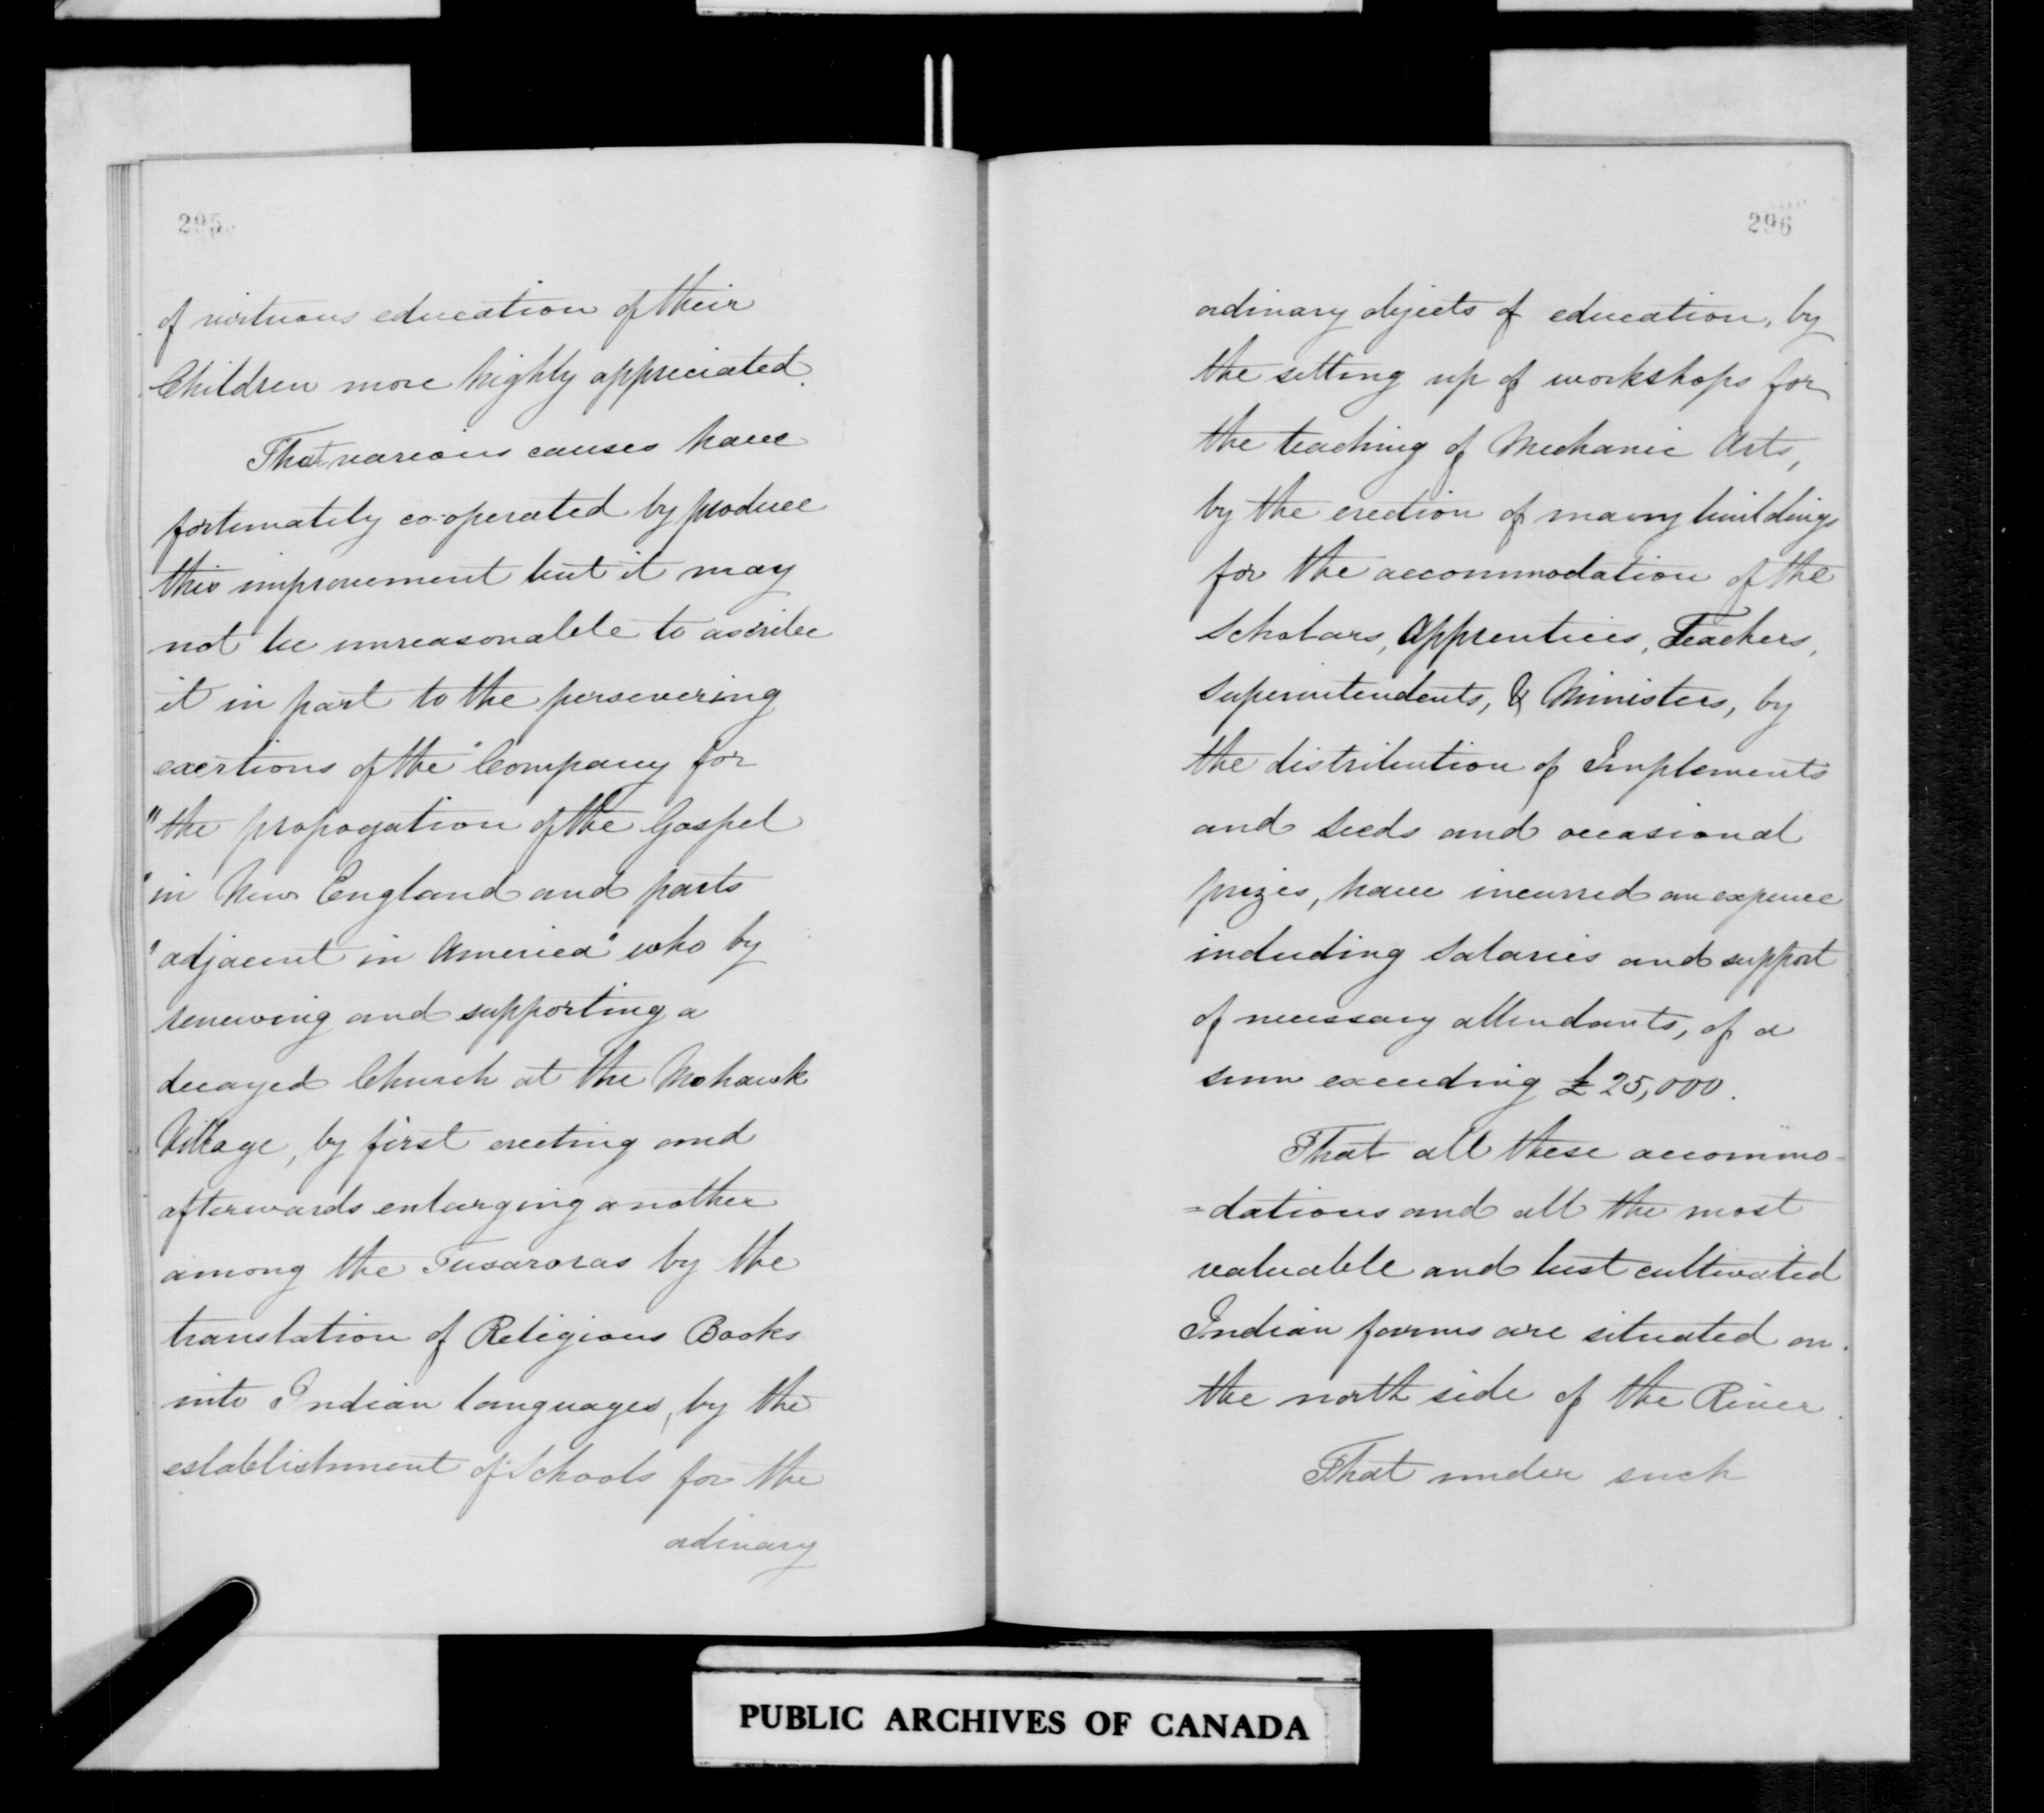 295
of virtuous education of their
Children more highly appreciated.
That various causes have
fortunately co-operated by produce
this improvement but it may
not be unreasonable to ascribe
it in part to the persevering
exertions of the "Company for
"the propogation of the Gospel
"in New England and parts
"adjacent in America" who by
renewing and supporting a
decayed Church at the Mohawk
Village, by first erecting and
afterwards enlarging another
among the Tusaroras by the
translation of Religious Books
into Indian languages, by the
establishment of Schools for the
ordinary
296
ordinary objects of education, by
the setting up of workshops for
the teaching of Mechanic Arts,
by the erection of many buildings
for the accommodation of the
Scholars, Apprentices, Teachers,
Superintendents, & Ministers, by
the distribution of Implements
and Seeds and occasional
prizes, have incurred an expence
including Salaries and support
of necessary attendants, of a
sum exceeding £25,000.
That all these accommo-
=dations and all the most
valuable and best cultivated
Indian farms are situated on
the north side of the River.
That under such
PUBLIC ARCHIVES OF CANADA